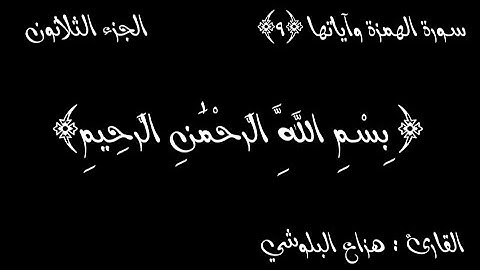 سورة الهمزة وآياتها ﴿٩﴾ الجزء الثلاثون
﴿بِسْمِ اللَّهِ الرَّحْمَٰنِ الرَّحِيمِ﴾
القارئ : هزاع البلوشي